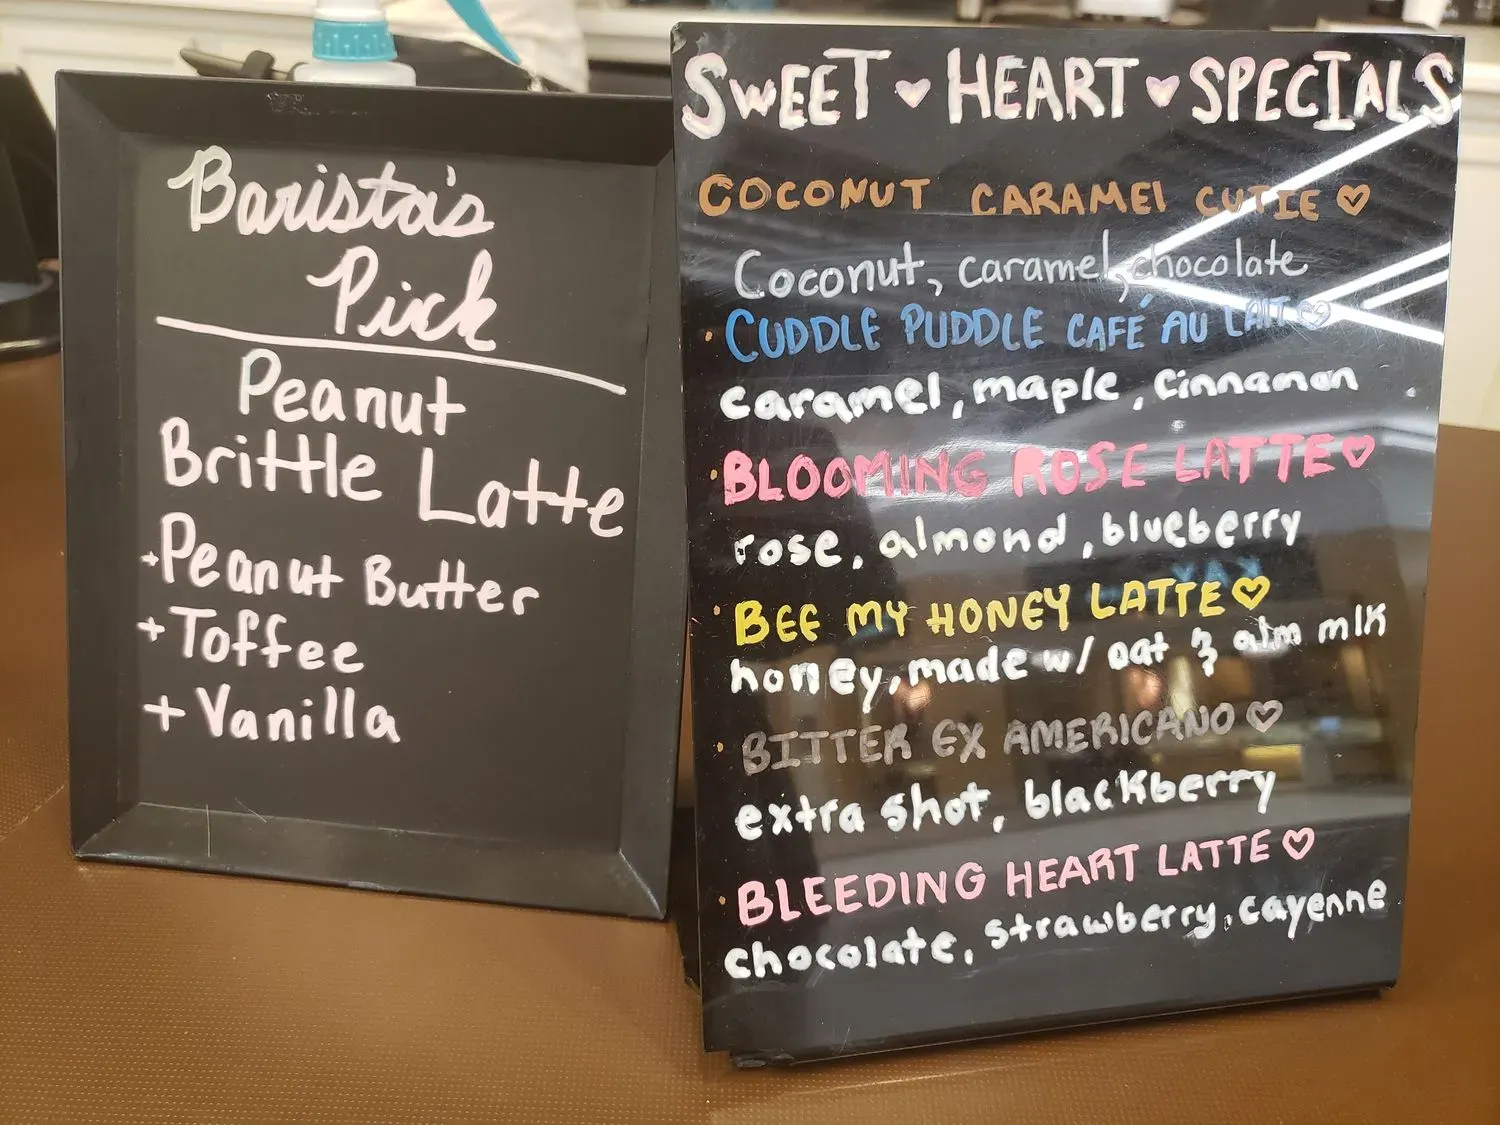 Barista's
Pick
Peanut
Brittle Latte
+Peanut Butter
+Toffee
+Vanilla
SWEET ♥ HEART ♥ SPECIALS
COCONUT CARAMEL CUTIE ♡
Coconut, caramel, chocolate
· CUDDLE PUDDLE CAFÉ AU LAIT ♡
caramel, maple, cinnamon
· BLOOMING ROSE LATTE ♡
rose, almond, blueberry
· BEE MY HONEY LATTE ♡
honey, made w/ oat & alm mlk
· BITTER EX AMERICANO ♡
extra shot, blackberry
· BLEEDING HEART LATTE ♡
chocolate, strawberry, cayenne